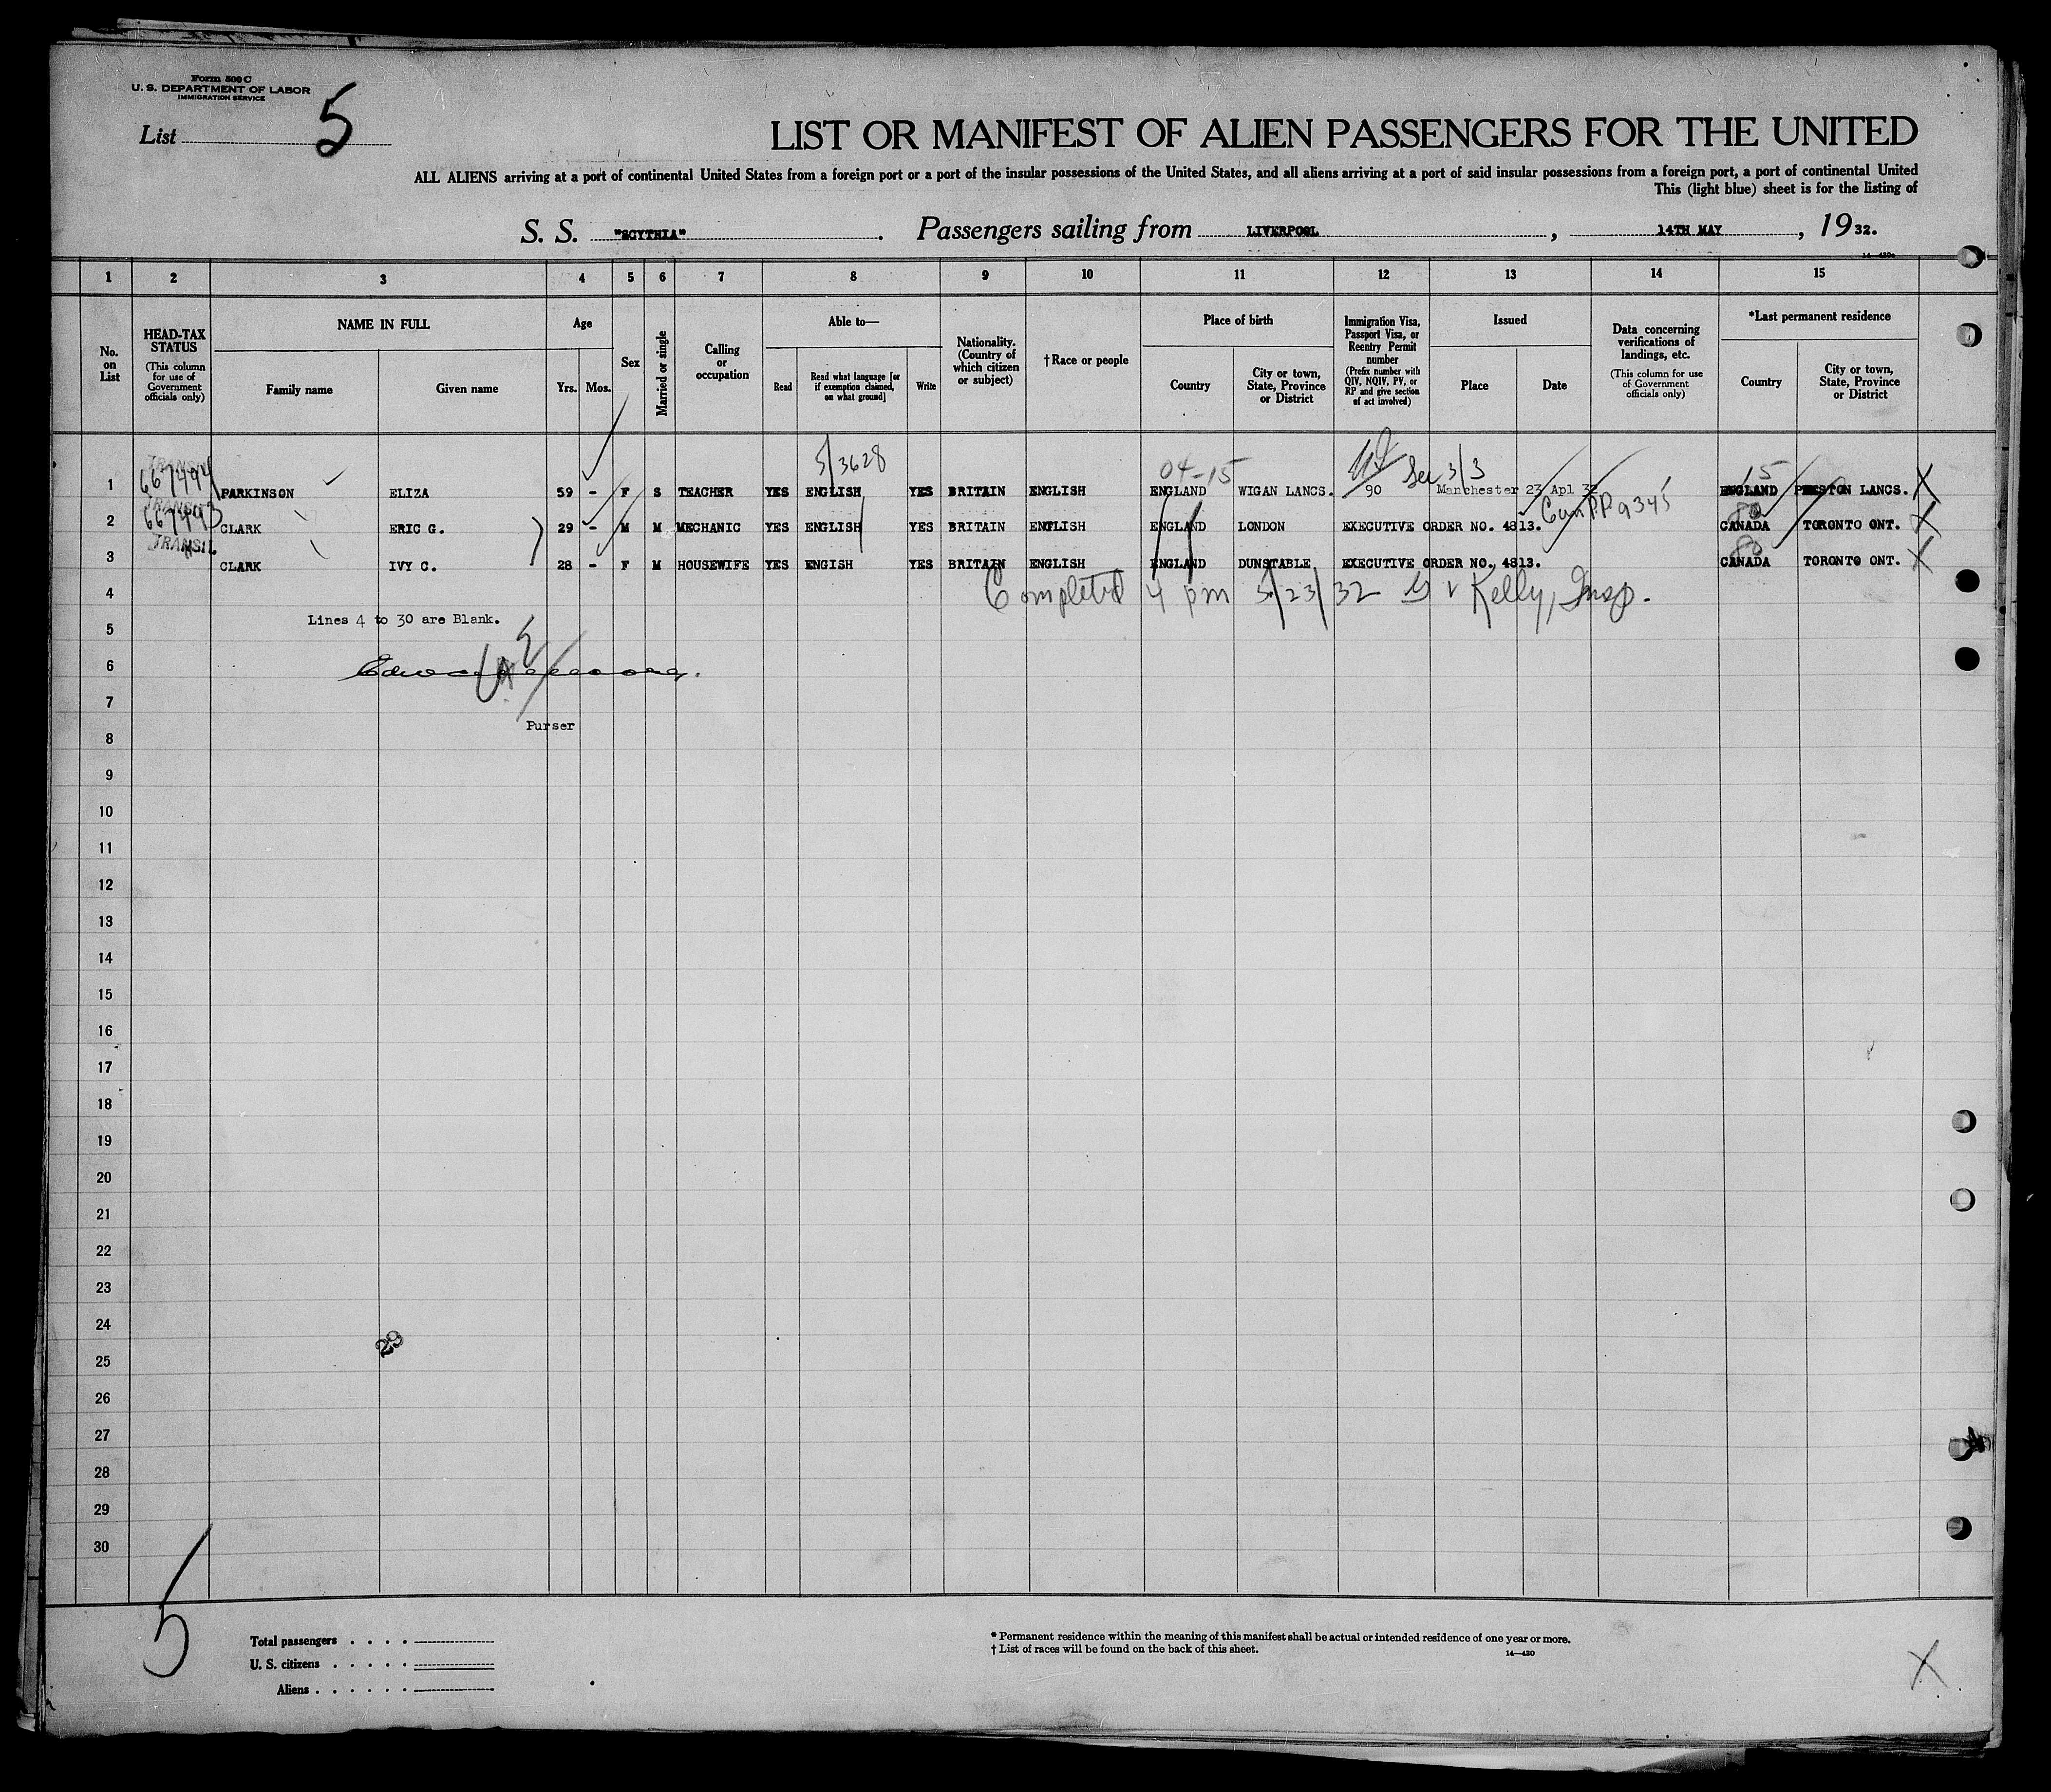 Form 500 C
U. S. DEPARTMENT OF LABOR
IMMIGRATION SERVICE
List 5
LIST OR MANIFEST OF ALIEN PASSENGERS FOR THE UNITED
ALL ALIENS arriving at a port of continental United States from a foreign port or a port of the insular possessions of the United States, and all aliens arriving at a port of said insular possessions from a foreign port, a port of continental United
This (light blue) sheet is for the listing of
S. S. "SCYTHIA". Passengers sailing from LIVERPOOL, 14TH MAY, 1932.
1 2 3 4 5 6 7 8 9 10 11 12 13 14 15
No. on List
HEAD-TAX STATUS
(This column for use of Government officials only)
NAME IN FULL
Family name
Given name
Age
Yrs. Mos.
Sex
Married or single
Calling or occupation
Able to—
Read
Read what language [or if exemption claimed, on what ground]
Write
Nationality. (Country of which citizen or subject)
†Race or people
Place of birth
Country
City or town, State, Province or District
Immigration Visa, Passport Visa, or Reentry Permit number
(Prefix number with QIV, NQIV, PV, or RP and give section of act involved)
Issued
Place
Date
Data concerning verifications of landings, etc.
(This column for use of Government officials only)
*Last permanent residence
Country
City or town, State, Province or District
5/3628
04-15
Sec 3/3
15
TRANSIT
667494
1 PARKINSON ELIZA 59 - F S TEACHER YES ENGLISH YES BRITAIN ENGLISH ENGLAND WIGAN LANCS. 90 Manchester 23 Apl 32 ENGLAND PRESTON LANCS. X
TRANSIT
667493
Can PP 9345
2 CLARK ERIC G. 29 - M M MECHANIC YES ENGLISH YES BRITAIN ENFLISH ENGLAND LONDON EXECUTIVE ORDER NO. 4813. CANADA TORONTO ONT. X
TRANSIT
3 CLARK IVY C. 28 - F M HOUSEWIFE YES ENGISH YES BRITAIN ENGLISH ENGLAND DUNSTABLE EXECUTIVE ORDER NO. 4813. CANADA TORONTO ONT. X
4 Completed 4 pm 5/23/32 Kelly, Insp.
Lines 4 to 30 are Blank.
5
6
7
Purser
8
9
10
11
12
13
14
15
16
17
18
19
20
21
22
23
24
23
25
26
27
28
29
30
5
Total passengers . . . .
U. S. citizens . . . . .
Aliens . . . . . .
* Permanent residence within the meaning of this manifest shall be actual or intended residence of one year or more.
† List of races will be found on the back of this sheet.
14—430
X